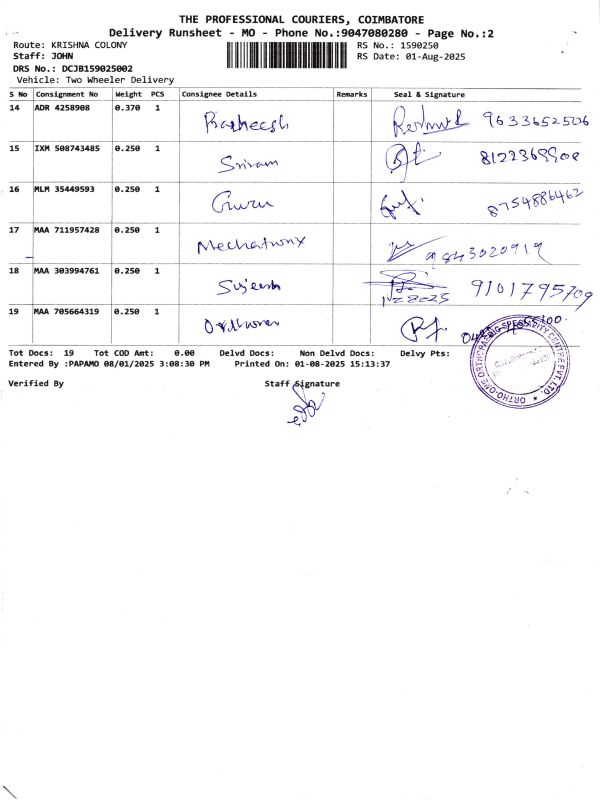 THE PROFESSIONAL COURIERS, COIMBATORE
Delivery Runsheet - MO - Phone No.:9047080280 - Page No.:2
Route: KRISHNA COLONY RS No.: 1590250
Staff: JOHN RS Date: 01-Aug-2025
DRS No.: DCJB159025002
Vehicle: Two Wheeler Delivery
S No Consignment No Weight PCS Consignee Details Remarks Seal & Signature
14 ADR 4258908 0.370 1 Pratheesh 9633652506
15 IXM 508743485 0.250 1 Sriram 8122369900
16 MLM 35449593 0.250 1 Guru 8754886462
17 MAA 711957428 0.250 1 Mechatronx 9843020919
18 MAA 303994761 0.250 1 Sujeesh 9101795709
1-8-2025
19 MAA 705664319 0.250 1
Tot Docs: 19 Tot COD Amt: 0.00 Delvd Docs: Non Delvd Docs: Delvy Pts:
Entered By :PAPAMO 08/01/2025 3:08:30 PM Printed On: 01-08-2025 15:13:37
Verified By Staff Signature
ORTHO-ONE ORTHOPAEDIC SPECIALITY CENTRE PVT LTD.